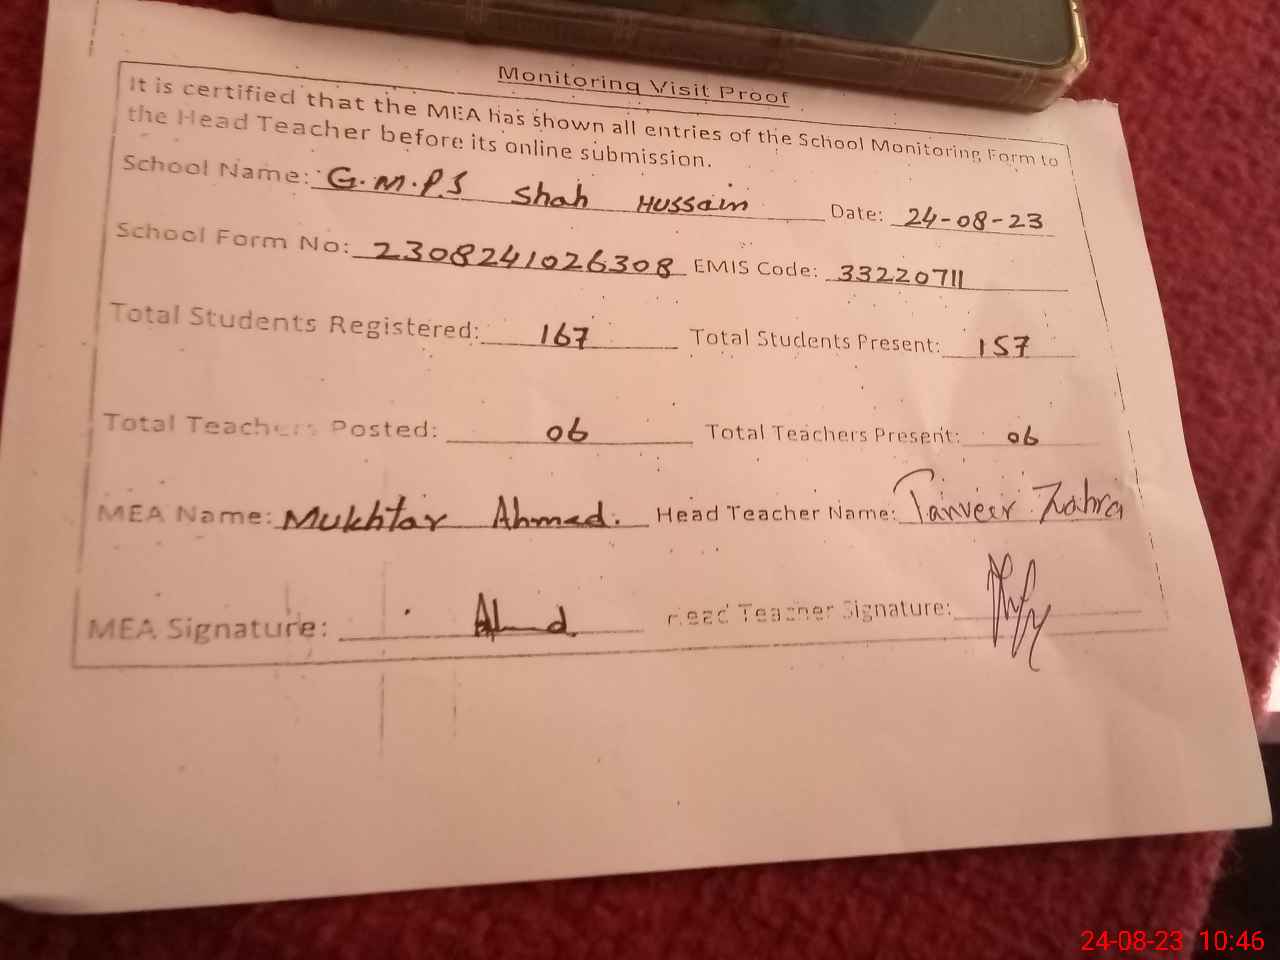 Monitoring Visit Proof
It is certified that the MEA has shown all entries of the School Monitoring Form to
the Head Teacher before its online submission.
School Name: G.M.P.S Shah Hussain Date: 24-08-23
School Form No: 2308241026308 EMIS Code: 33220711
Total Students Registered: 167 Total Students Present: 157
Total Teachers Posted: 06 Total Teachers Present: 06
MEA Name: Mukhtar Ahmed. Head Teacher Name: Tanveer Zahra
MEA Signature: Ahmd Head Teacher Signature:
24-08-23 10:46